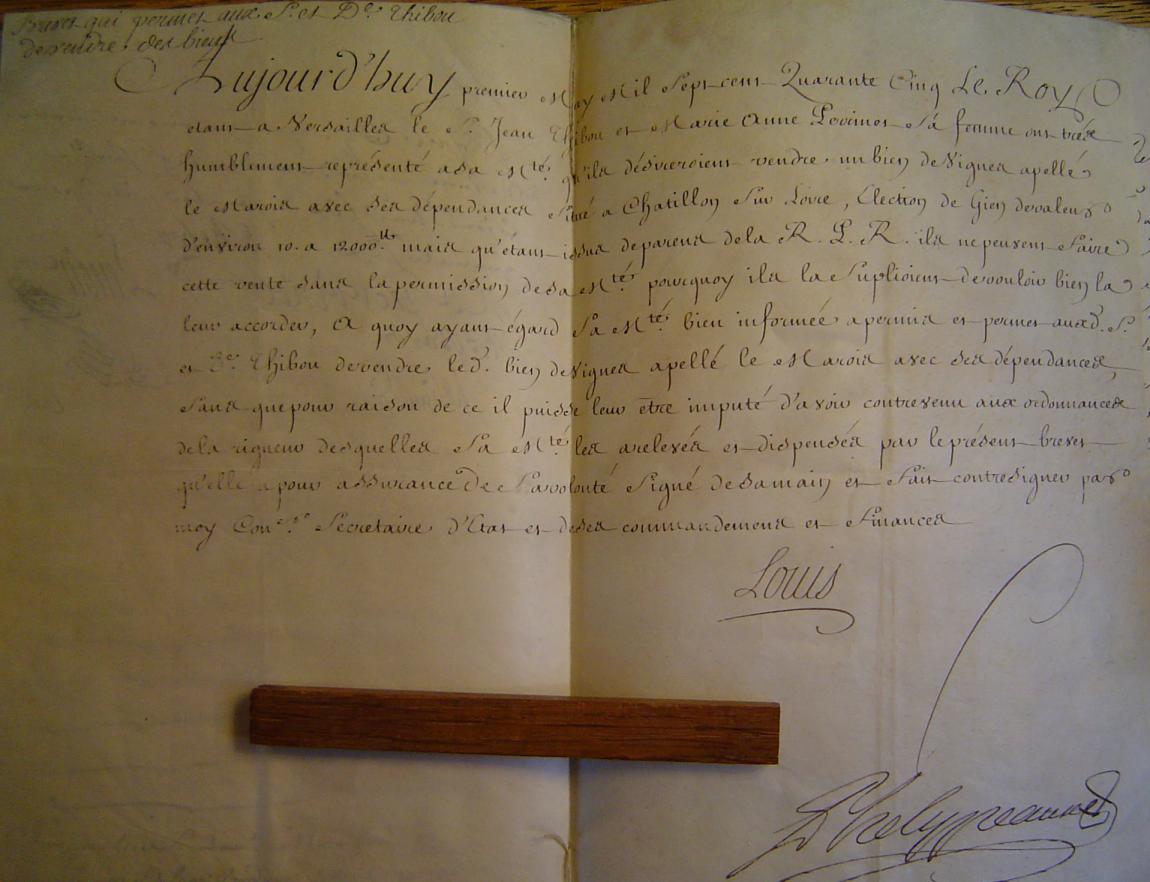 Brevet qui permet aux S.r et D.e Thibou
de vendre des biens
Aujourd'huy premier May Mil Sept cent Quarante Cinq Le Roy
etant a Versailles le S.r Jean Thibou et Marie Anne sa femme ont trés
humblement représenté a sa M.té qu'ils désireroient vendre un bien de Vignes apellé
le Marois avec ses dépendances situé a Chatillon Sur Loire, Election de Gien de valeur
d'environ 10. a 12000.tt mais qu'étant issus de parens de la R. P. R. ils ne peuvent faire
cette vente sans la permission de sa M.té pourquoy ils la suplioient de vouloir bien la
leur accorder, A quoy ayant égard Sa M.té bien informée a permis et permet aux d. S.r
et D.e Thibou de vendre le d. bien de Vignes apellé le Marois avec ses dépendances,
sans que pour raison de ce il puisse leur etre imputé d'avoir contrevenu aux ordonnances
de la rigueur desquelles Sa M.té les a relevés et dispensés par le présent brevet
qu'elle a pour assurance de sa volonté Signé de sa main et fait contresigner par
moy Con.er Secretaire d'Etat et de ses commandemens et finances
Louis
Phelypeaux